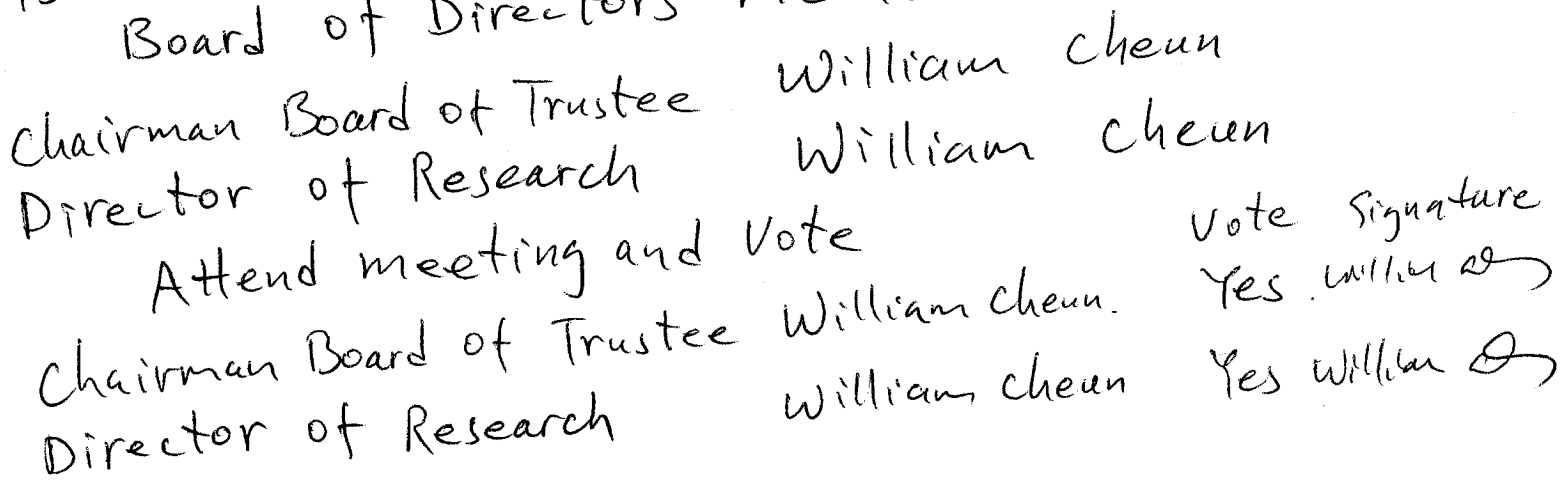 Board of Directors
Chairman Board of Trustee William Cheun
Director of Research William Cheun
Attend meeting and Vote Vote Signature
Chairman Board of Trustee William Cheun. Yes William
Director of Research William Cheun Yes William